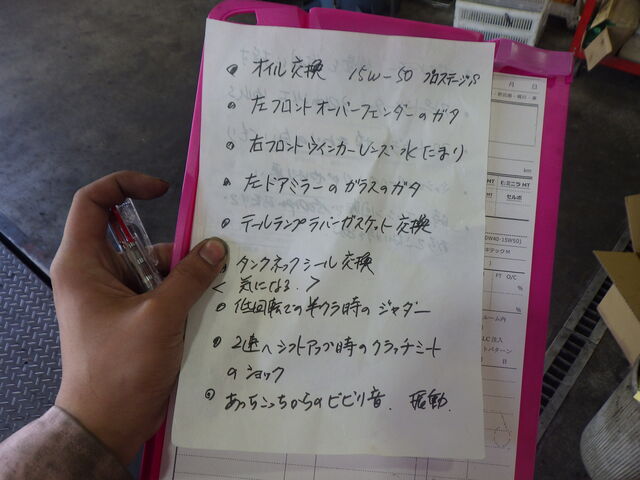 ・オイル交換 15W-50 プロステージS
・左フロントオーバーフェンダーのガタ
・右フロントウインカーレンズ水たまり
・左ドアミラーのガラスのガタ
・テールランプラバーガスケット交換
・タンクネックシール交換
<気になる>
・低回転での半クラ時のジャダー
・2速へシフトアップ時のクラッチミート
のショック
・あっちこっちからのビビり音. 振動.
月 日
MT
ミニラ MT
セルボ
0W40・15W50)
FT O/C
%
%
ルーム内
LLC 注入
トパターン